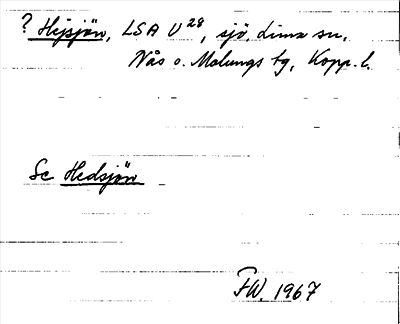 ? Hejsjön, LSA U²⁸, sjö, Lima sn,
Nås o. Malungs tg, Kopp. l.
Se Hedsjön
FW. 1967